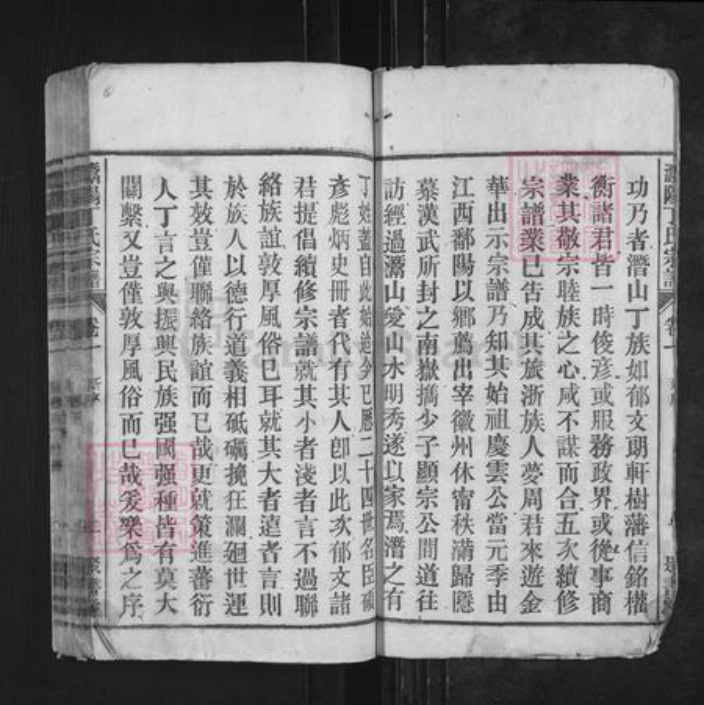 功乃者潛山丁族如郁文瑚軒樹藩信銘權
衡諸君皆一時俊彥或服務政界或從事商
業其敬宗睦族之心咸不謀而合五次續修
宗譜業已吿成其旅浙族人夢周君來遊金
華出示宗譜乃知其始祖慶雲公當元季由
江西鄱陽以鄉薦出宰徽州休甯秩滿歸隱
慕漢武所封之南嶽擕少子顯宗公間道往
訪經過潛山愛山水明秀遂以家焉潛之有
丁姓蓋自此始迄今已歷二十四世名臣碩
彥彪炳史冊者代有其人卽以此次郁文諸
君提倡續修宗譜就其小者淺者言不過聯
絡族誼敦厚風俗已耳就其大者遠者言則
於族人以德行道義相砥礪挽狂瀾廻世運
其效豈僅聯絡族誼而已哉更就策進蕃衍
人丁言之與振興民族强國强種皆有莫大
關繫又豈僅敦厚風俗而已哉爰樂爲之序
丁氏宗譜 卷一